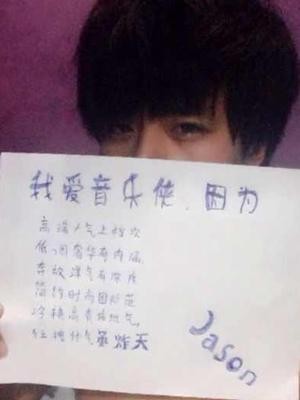 我爱音乐使,因为
高端大气上档次
低调奢华有内涵
奔放洋气有深度
简约时尚国际范
冷艳高贵接地气,
狂拽什气吊炸天
Jason